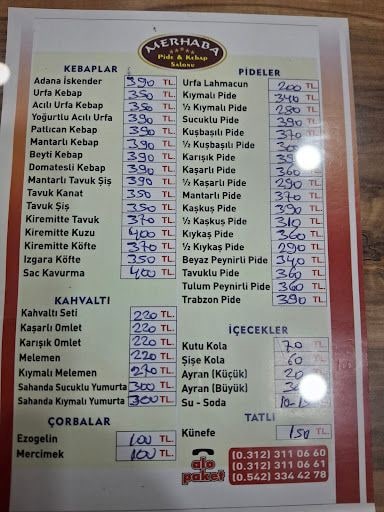 MERHABA
Pide & Kebap
Salonu
KEBAPLAR
Adana İskender 390 TL.
Urfa Kebap 350 TL.
Acılı Urfa Kebap 350 TL.
Yoğurtlu Acılı Urfa 390 TL.
Patlıcan Kebap 390 TL.
Mantarlı Kebap 390 TL.
Beyti Kebap 390 TL.
Domatesli Kebap 390 TL.
Mantarlı Tavuk Şiş 390 TL.
Tavuk Kanat 350 TL.
Tavuk Şiş 350 TL.
Kiremitte Tavuk 370 TL.
Kiremitte Kuzu 400 TL.
Kiremitte Köfte 370 TL.
Izgara Köfte 350 TL.
Sac Kavurma 400 TL.
KAHVALTI
Kahvaltı Seti 220 TL.
Kaşarlı Omlet 220 TL.
Karışık Omlet 220 TL.
Melemen 220 TL.
Kıymalı Melemen 270 TL.
Sahanda Sucuklu Yumurta 300 TL.
Sahanda Kıymalı Yumurta 300 TL.
ÇORBALAR
Ezogelin 100 TL.
Mercimek 100 TL.
PİDELER
Urfa Lahmacun 200 TL.
Kıymalı Pide 340 TL.
½ Kıymalı Pide 280 TL.
Sucuklu Pide 390 TL.
Kuşbaşılı Pide 370 TL.
½ Kuşbaşılı Pide TL.
Karışık Pide TL.
Kaşarlı Pide 360 TL.
½ Kaşarlı Pide 290 TL.
Mantarlı Pide 370 TL.
Kaşkuş Pide 390 TL.
½ Kaşkuş Pide 310 TL.
Kıykaş Pide 360 TL.
½ Kıykaş Pide 290 TL.
Beyaz Peynirli Pide 340 TL.
Tavuklu Pide 360 TL.
Tulum Peynirli Pide 360 TL.
Trabzon Pide 390 TL.
İÇECEKLER
Kutu Kola 70 TL.
Şişe Kola 60 TL.
Ayran (Küçük) 20 TL.
Ayran (Büyük) TL.
Su - Soda TL.
TATLI
Künefe 150 TL.
alo
paket
(0.312) 311 06 60
(0.312) 311 06 61
(0.542) 334 42 78